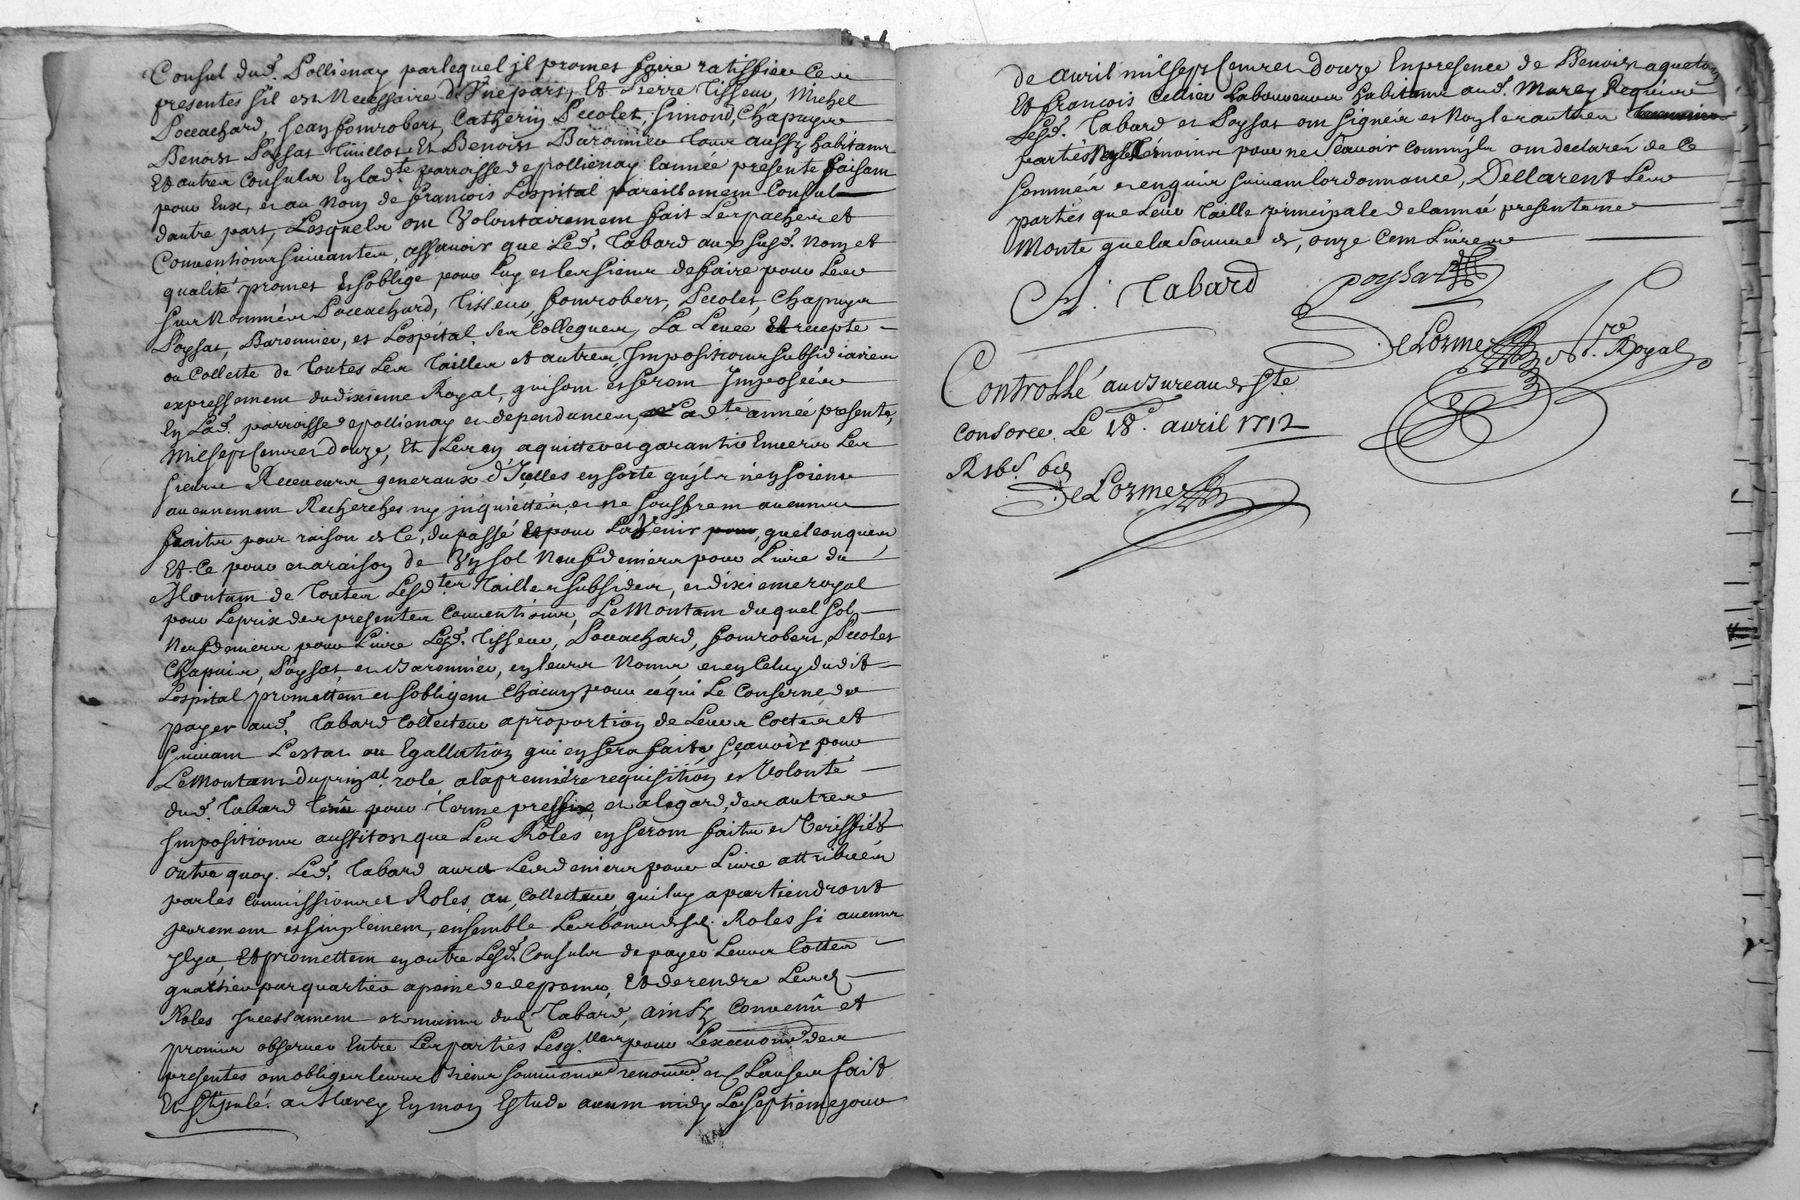 Consul dud. Pollienay par lequel jl promet faire ratiffier Ces
presentes s'il est Necessaire d'une part, Et Pierre Tisseur, Michel
Poccachard, Jean fomrobert, Catherin Pecolet, Simond Chapuys
Benoist Poysat Tuillot Et Benoist Baronnier Tous aussy habitans
Et autres Consuls En lad.te parroisse de pollienay lannée presente faisant
pour Eux, et au Nom de francois Lospital pareillement Consul
dautre part, Lesquels ont Volontairement fait Les paches et
Conventions suivantes, assavoir que Led. Tabard aux susd. Nom et
qualité promet Et soblige pour Luy et les siens de faire pour Les
sus Nommés Poccachard, Tisseur, fomrobert, Pecolet, Chapuys
Poysat, Baronnier, et Lospital, ses Collegues, La Levée Et recepte
ou Collecte de Toutes Les Tailles et autres Impositions subsidiaires
expressement du dixieme Royal, qui sont et seront Imposées
En Lad. parroisse de pollienay et dependances, Lad.te année presente,
Mil sept Cens et douze, Et Les en aquitter et garantir Envers Les
sieurs Receveurs generaux d'Icelles en sorte qu'jls n'en soient
aucunement Recherchés ny jnquiettés et ne souffrent aucuns
fraits pour raison de Ce, du passé Et pour LaVenir quelconques
Et Ce pour et a raison de Vn sol Neuf deniers pour Livre du
Montant de Toutes Lesd.tes Tailles subsides, et dixieme royal
pour Le prix des presentes Conventions, Le Montant duquel sol
Neuf deniers pour Livre Lesd. Tisseur, Poccachard, fomrobert, Pecolet
Chapuis, Poysat, et Baronnier, en leurs Noms et en Celuy dudit
Lospital promettent et sobligent Chacun pour ce qui Le Conserne de
payer aud. Tabard Collecteur a proportion de Leurs Cottes et
suivant Lestat ou Egallation qui en sera faite sçavoir pour
Le Montant du prin.al role, a la premiere requisition et Volonté
dud. Tabard pour Terme preffix, et a legard des autres
Impositions aussitost que Les Rôles en seront faits et Veriffiés
Outre quoy Led. Tabard aura Les deniers pour Livre attribués
par les Commissions et Roles, au Collecteur, qui luy apartiendront
purement et simplement, ensemble Les bons desd. Roles si aucuns
jl y a, Et promettent en outre Lesd. Consuls de payer Leurs Cottes
quartier par quartier a peine de depens, Et de rendre Lesd.
Roles jncessament es mains dud. Tabard, ainsy Convenû et
promis observer Entre Les parties Lesq.lles pour Lexecution des
presentes ont obligé leurs biens et Clauses fait
Et stipulé a Marcy En mon Estude avant midy Le septieme jour
de avril mil sept Cens et douze En presence de Benoist
Et francois Cellier Laboureurs habitans aud. Marcy Requis
Lesd. Tabard et Poysat ont signé et Non les autres
parties Ny les Témoins pour ne sçavoir comm'jls ont declaré de Ce
sommés et enquis suivant lordonnance, Declarent Les
parties que Leur Taille principale de lannée presente ne
Monte que la somme de, onze Cent Livres
A: Tabard
poysat
DeLorme
N.re Royal
Controllé au Bureau de Ste.
Consorce Le 18.e avril 1712
DeLorme